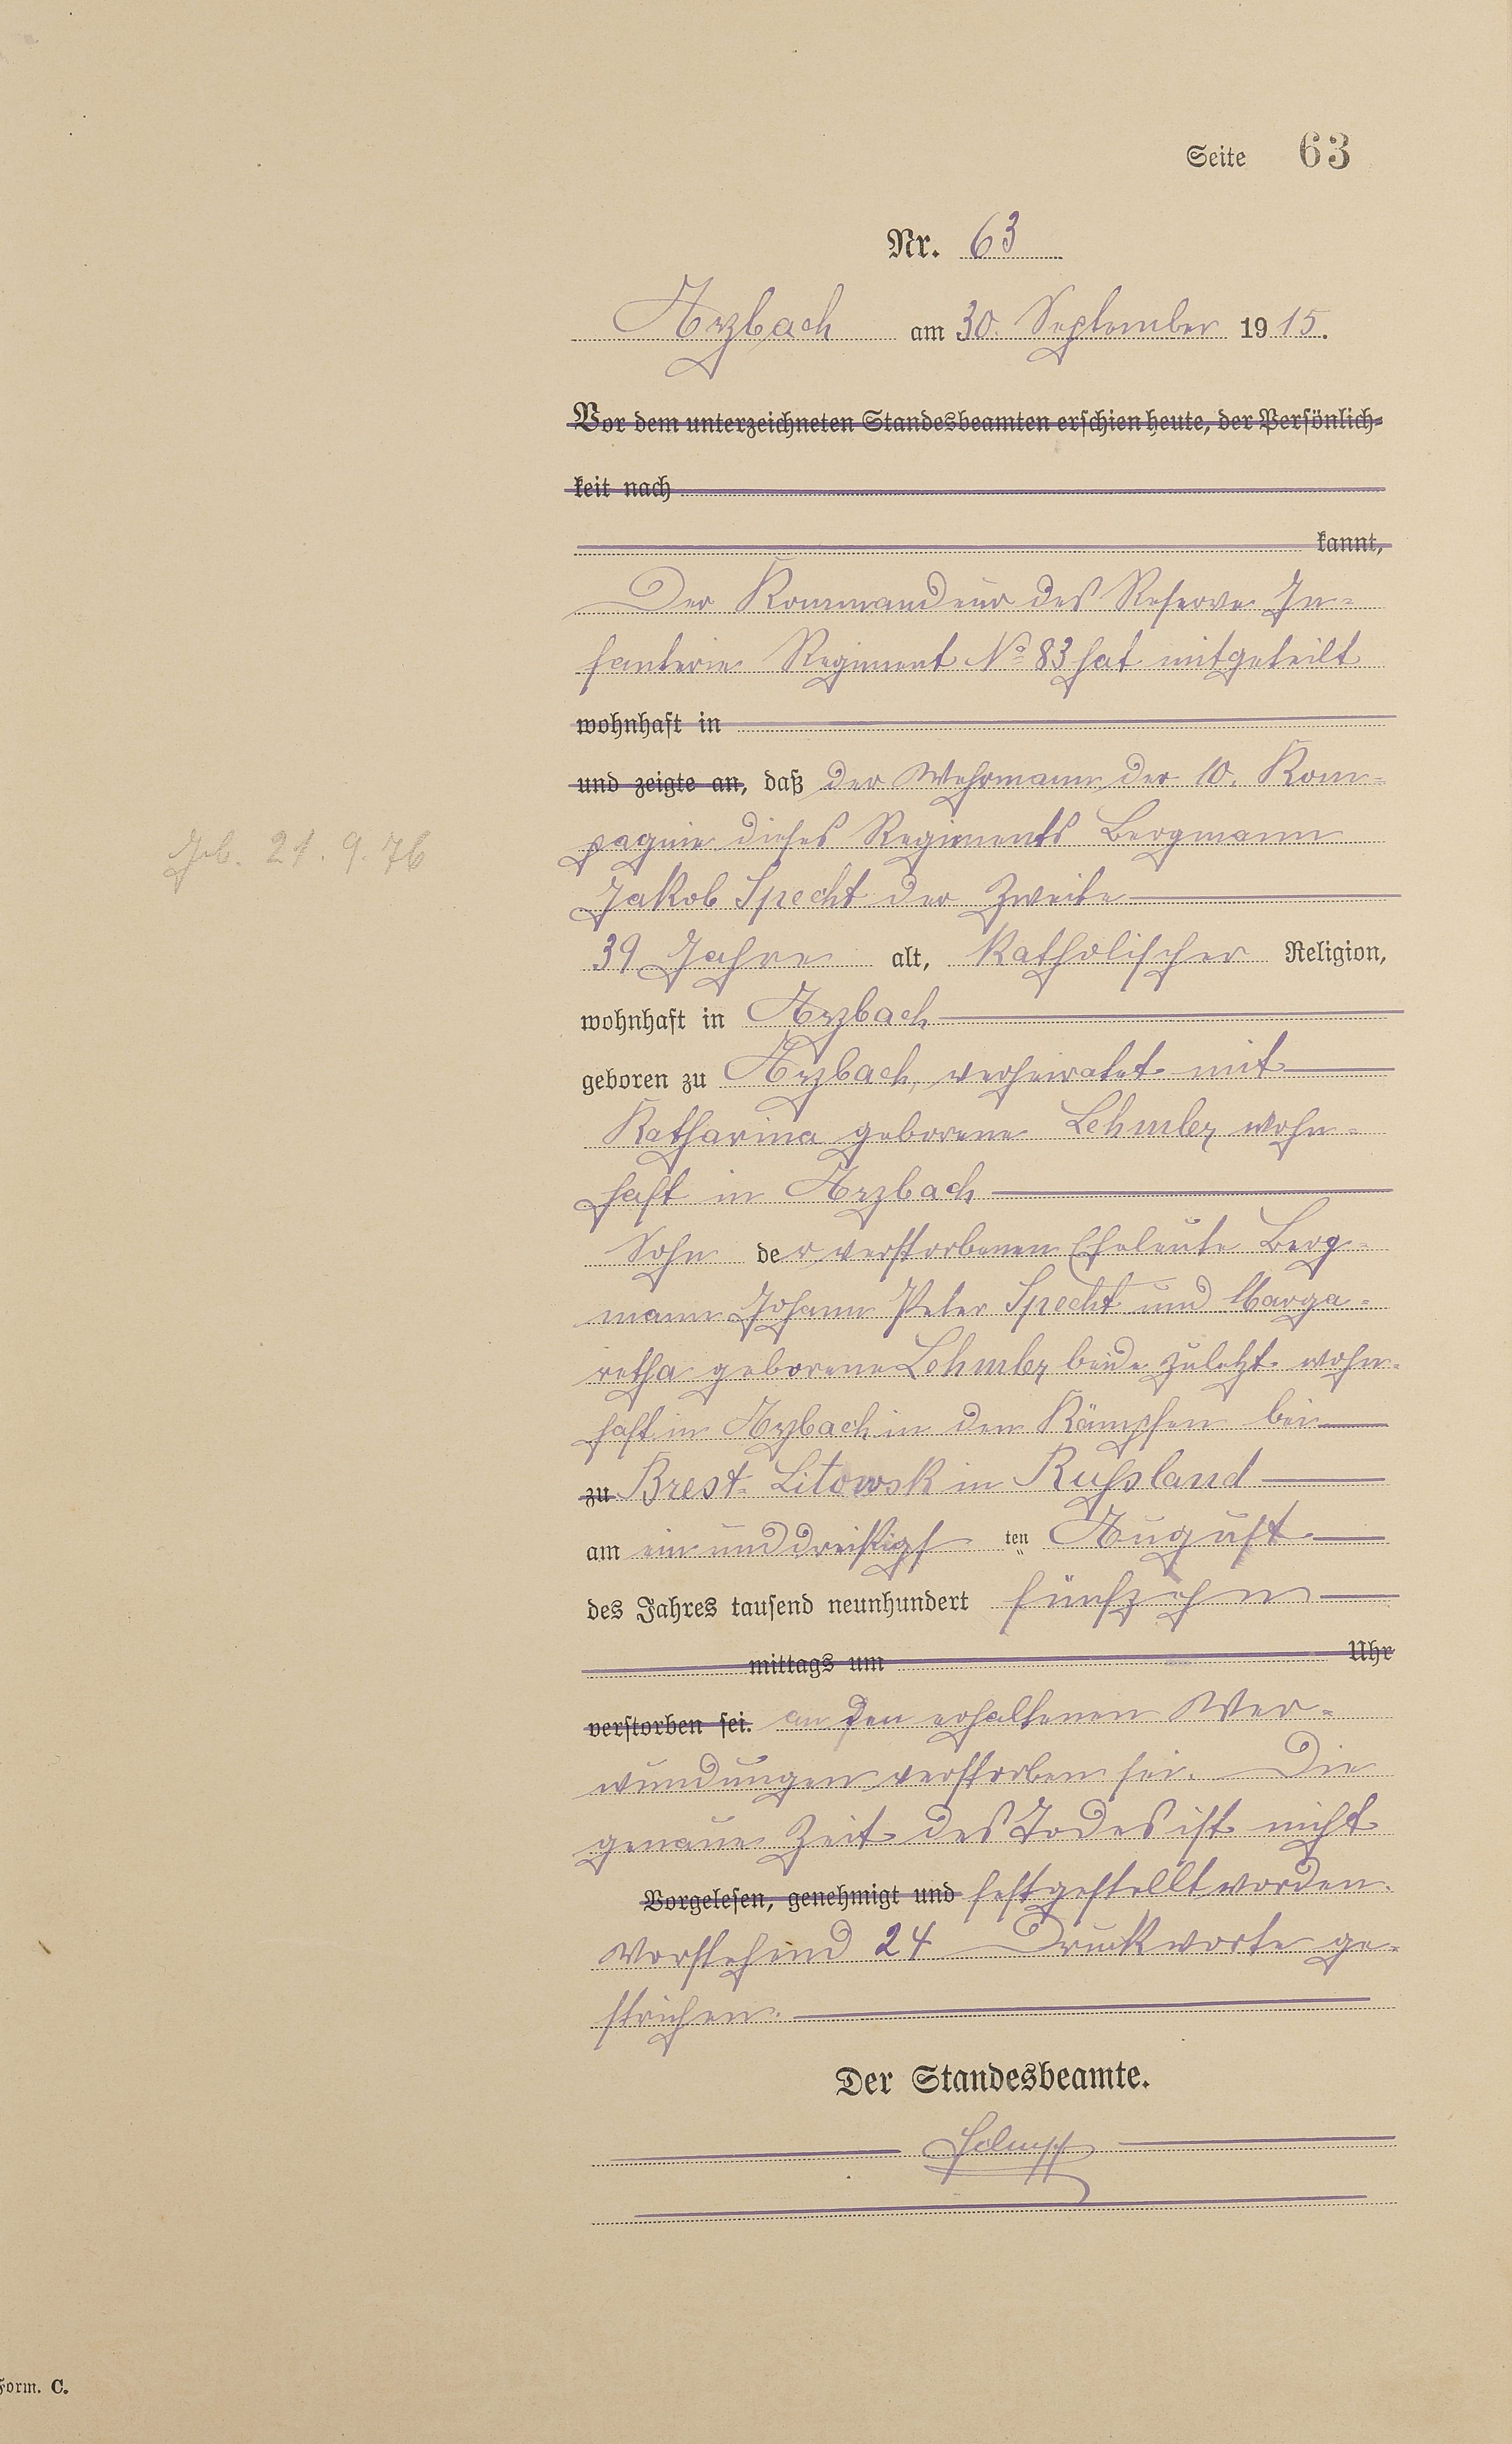 Seite 63
Nr. 63
Arzbach am 30. September 1915.
Vor dem unterzeichneten Standesbeamten erschien heute, der Persönlich-
keit nach
kannt,
Der Kommandeur des Reserve In-
fanterie Regiment No 83 hat mitgeteilt
wohnhaft in
und zeigte an, daß der Wehrmann der 10. Kom-
pagnie dieses Regiments Bergmann
Geb. 21. 9. 76
Jakob Specht der Zweite
39 Jahre alt, katholischer Religion,
wohnhaft in Arzbach
geboren zu Arzbach, verheiratet mit
Katharina geborene Lehmler wohn-
haft in Arzbach
Sohn der verstorbenen Eheleute Berg-
mann Johann Peter Specht und Marga-
retha geborene Lehmler beide zuletzt wohn-
haft in Arzbach in den Kämpfen bei
zu Brest-Litowsk in Russland
am ein und dreißigsten August
des Jahres tausend neunhundert fünfzehn
mittags um Uhr
verstorben sei. an den erhaltenen Ver-
wundungen verstorben sei. Die
genaue Zeit des Todes ist nicht
Vorgelesen, genehmigt und festgestellt worden.
Vorstehend 24 Druckworte ge-
strichen.
Der Standesbeamte.
Form. C.